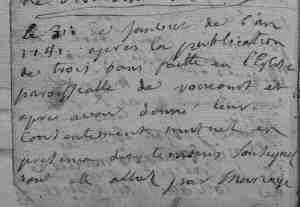 le 31e janvier de l'an
1741 apres la publication
de trois bans faitte en l'Eglise
paroissialle de voecourt et
apres avoir donné leur
Consentement mutuel en
presence des temoins soussignes
sont allies par Mariage